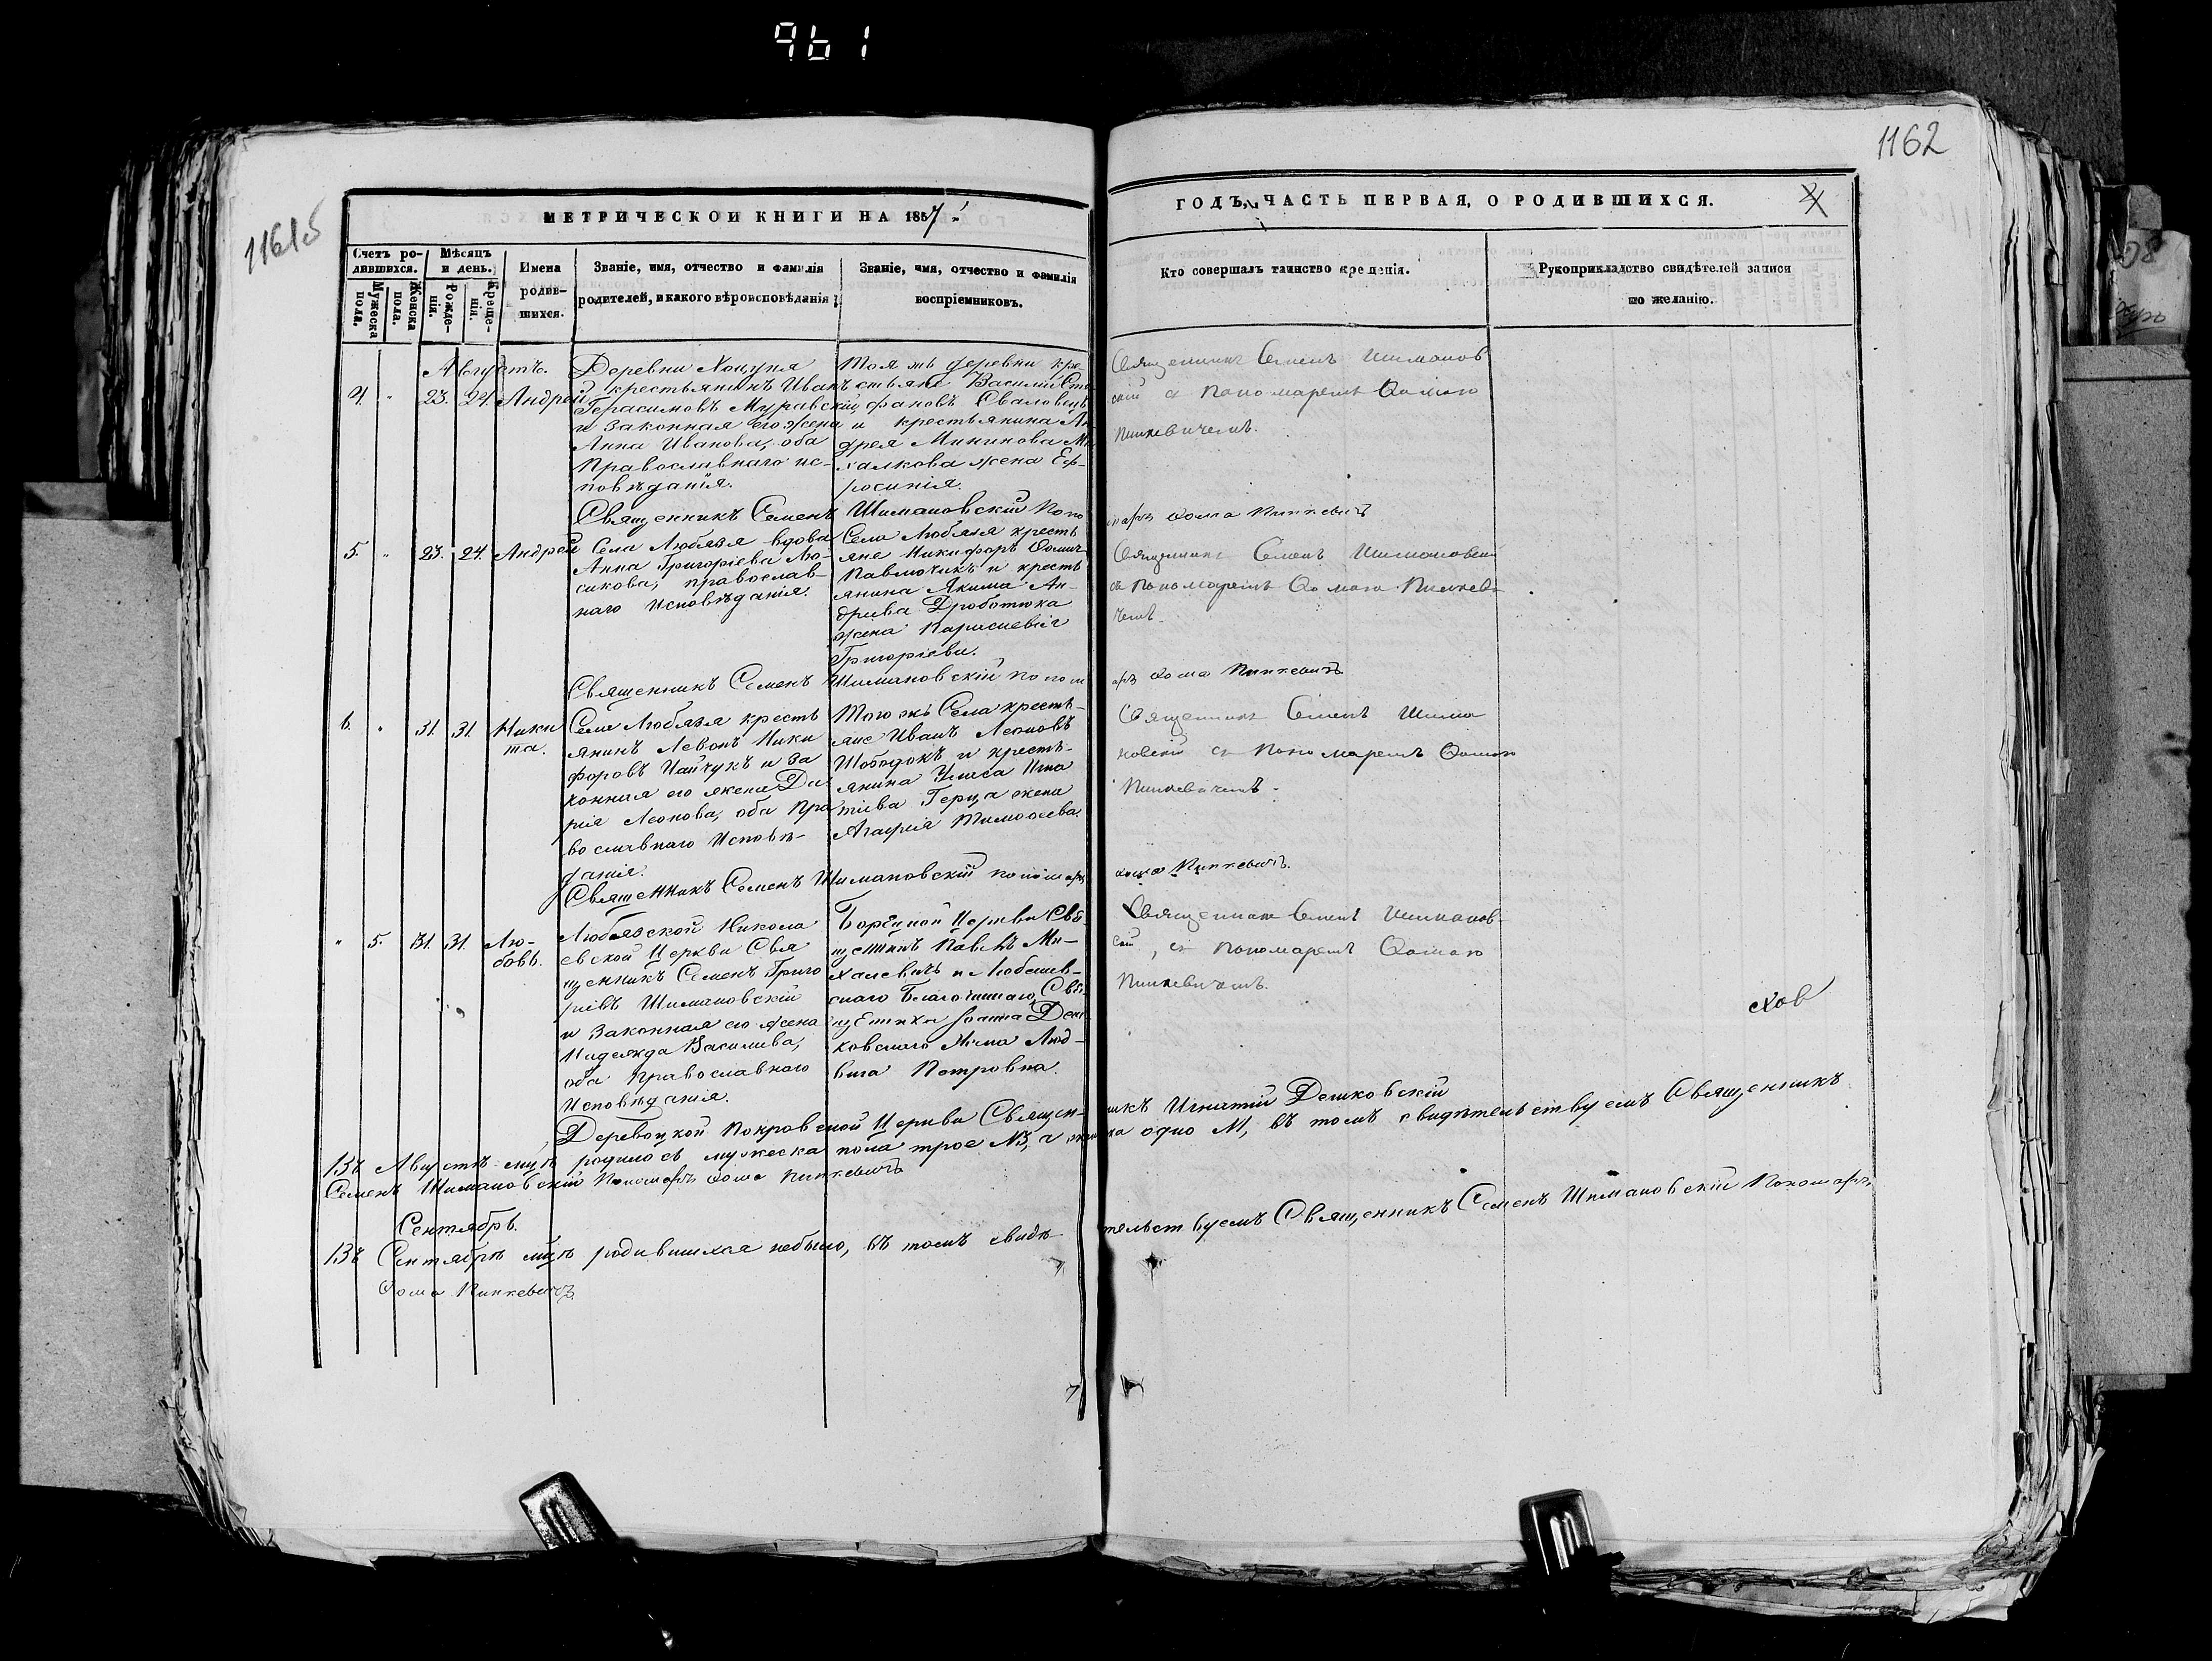 961
1162
1161об
МЕТРИЧЕСКОЙ КНИГИ НА 1857.
ГОДЪ, ЧАСТЬ ПЕРВАЯ, О РОДИВШИХСЯ.
Счетъ родившихся.
Мужеска пола.
Женска пола.
Мѣсяцъ и день.
Рожденія.
Крещенія.
Имена родившихся.
Званіе, имя, отчество и фамилія
родителей, и какого вѣроисповѣданія
Званіе, имя, отчество и фамилія
воспріемниковъ.
Кто совершалъ таинство крещенія.
Рукоприкладство свидѣтелей записи
по желанію.
Августъ.
4. " 23. 24. Андрей
Деревни Хоцуня
крестьянинъ Иванъ
Герасимовъ Муравскій
и законная его жена
Анна Иванова, оба
православнаго ис-
повѣданія.
Тоя жъ деревни кре-
стьяне Василій Сте
фановъ Сваловецъ
и крестьянина Ан
дрея Мининова Ми
халкова жена Еф-
росинія.
Священникъ Семенъ Шиманов
скій съ пономаремъ Ѳомою
Пинкевичемъ.
Священникъ Семенъ Шимановскій Поно
марь Ѳома Пинкевичъ
5. " 23. 24. Андрей
Села Любязя вдова
Анна Григоріева Лю-
сикова, православ-
наго исповѣданія.
Села Любязя кресть
яне Никифоръ Ѳомич
Павлючикъ и кресть
янина Якима Ан-
дреева Дроботюка
жена Параскевія
Григоріева.
Священникъ Семенъ Шимановскій
съ пономаремъ Ѳомою Пинкеви
чемъ.
Священникъ Семенъ Шимановскій поном
арь Ѳома Пинкевичъ
6. " 31. 31. Ники
та.
Села Любязя кресть
янинъ Левонъ Ники
форовъ Цайчукъ и за
конная его жена Да
рія Леонова, оба пра
вославнаго исповѣ-
данія.
Того жъ Села кресть-
яне Иванъ Леоновъ
Шободокъ и кресть-
янина Улиса Игна
тіева Герца жена
Агафія Тимоѳеева.
Священникъ Семенъ Шима
новскій съ пономаремъ Ѳомою
Пинкевичемъ.
Священникъ Семенъ Шимановскій пономарь
Ѳома Пинкевичъ.
" 5. 31. 31. Лю-
бовь.
Любязской Никола
евской Церкви Свя
щенникъ Семенъ Григо
ріевъ Шимановскій
и законная его жена
Надежда Васильева,
оба православнаго
Исповѣданія.
Церкви Свя
щенникъ Павелъ Ми-
халевичъ и Любешев-
скаго Благочиннаго Свя
щенника Іоанна
жена Люд-
вига Петровна.
Священникъ Семенъ Шиманов
скій, съ пономаремъ Ѳомою
Пинкевичемъ.
Деревоцкой Покровской Церкви Священ-
никъ Игнатій Дешковскій
Въ Августѣ м-цѣ родилось мужеска пола трое №3, а женска одно №1, въ томъ свидѣтельствуемъ Священникъ
Семенъ Шимановскій Пономарь Ѳома Пинкевичъ
Сентябрь.
Въ Сентябрѣ м-цѣ родившихся небыло, въ томъ свидѣтельствуемъ Священникъ Семенъ Шимановскій Пономарь
Ѳома Пинкевичъ.